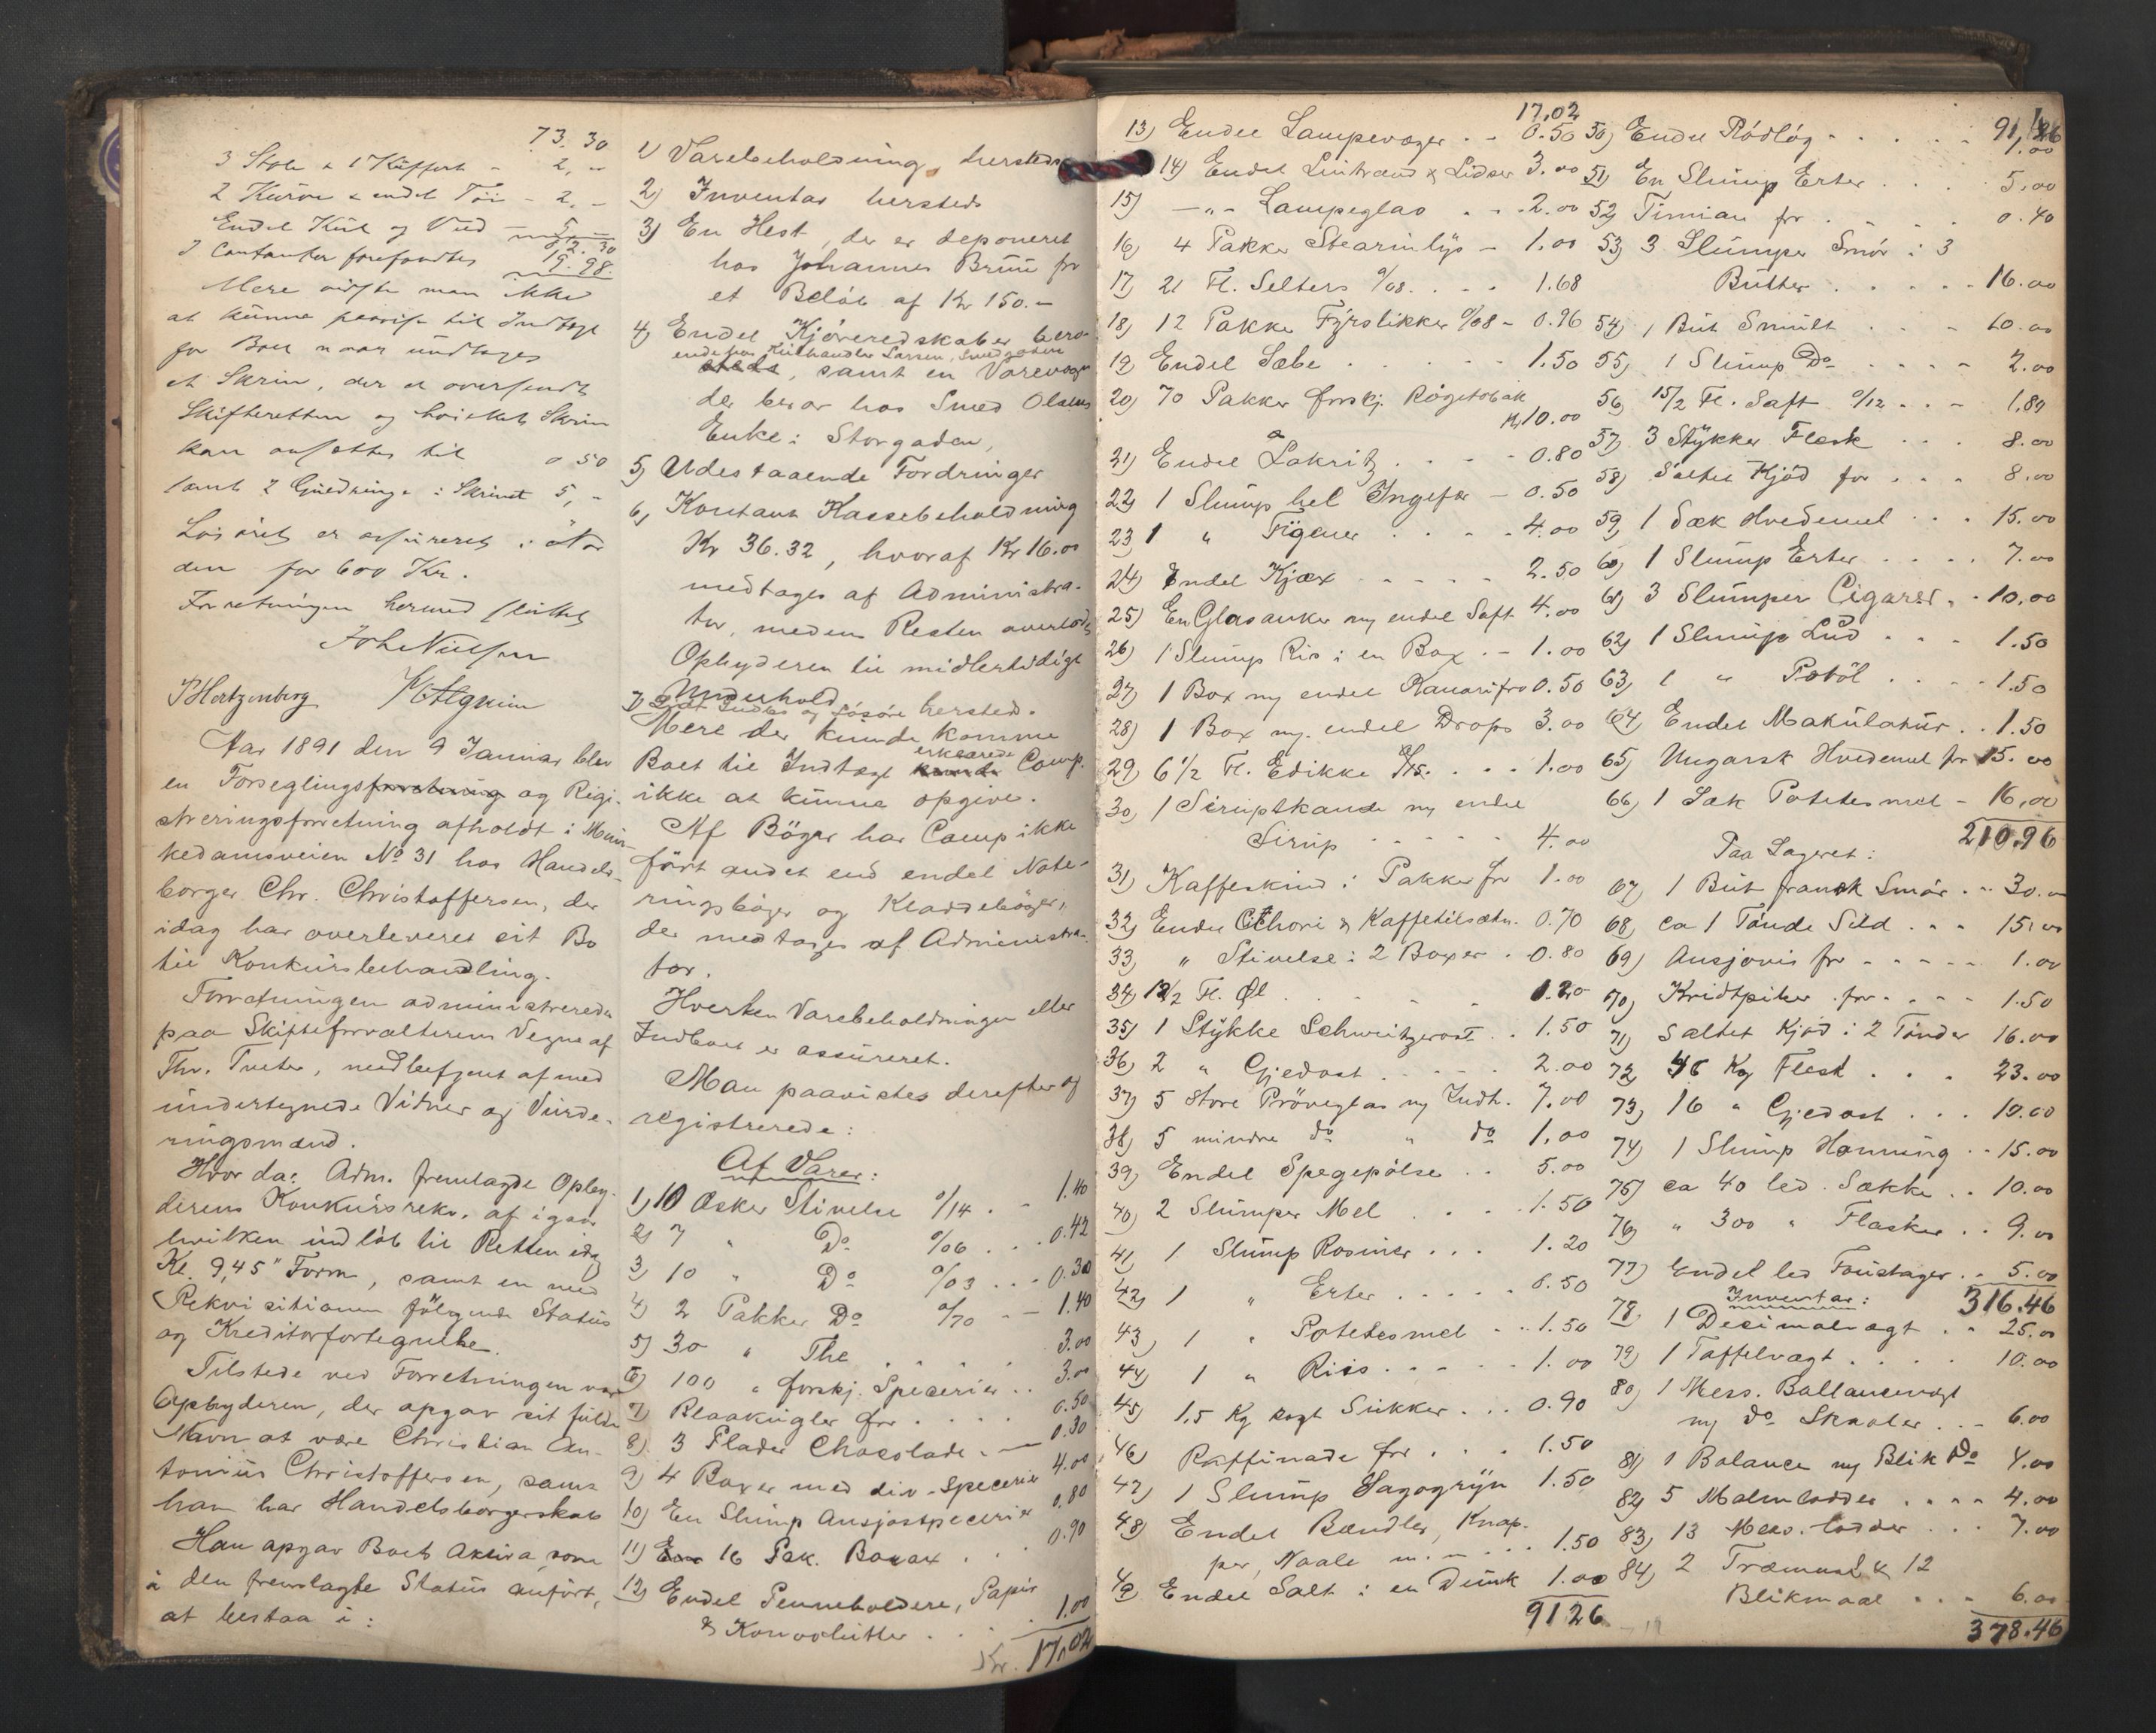 73.30
3 Stole & 1 Kuffert - 2,-
2 Kurve & endel Töi - 2.-
Endel Kul og Ved - 5 -
82.30
I Contanter forefandtes 19.98.
Mere vidste man ikke
at kunne paavise til Indtægt
for Boet naar undtages
et Skrin, der er oversendt
Skifteretten og hvilket Skrin
kan ansættes til 0 50
samt 2 Guldringe i Skrinet 5,-
Lösöret er assureret i Nor
den for 600 Kr.
Forretningen hermed sluttet
Joh Nielsen
P Hertzenberg
Aar 1891 den 9 Januar blev
en Forseglingsforretning og Regi-
streringsforretning afholdt i Mun-
kedamsveien No 31 hos Handels-
borger Chr. Christoffersen, der
idag har overleveret sit Bo
til Konkursbehandling.
Forretningen administreredes
paa Skifteforvalterens Vegne af
Thv. Tveter, medbefjent af med
undertegnede Vidner og Vurde-
ringsmænd.
Hvor da: Adm. fremlagde Opby-
derens Konkursrekv. af igaar
hvilken indløb til Retten idag
Kl. 9,45" Form, samt en med
Rekvisitionen fölgende Status
og Kreditorfortegnelse.
Tilstede ved Forretningen var
Opbyderen, der opgav sit fulde
Navn at være Christian An-
tonius Christoffersen, samt
han har Handelsborgerskab
Han opgav Boets Aktiva som
i den fremlagte Status anfört,
at bestaa i:
1) Varebeholdning hersteds
2) Inventar hersteds
3) En Hest, der er deponeret
hos Johannes Bruun for
et Belöb af Kr 150.-
4) Endel Kjöreredskaber bero-
ende hos Kulhandler Larsen, Smedgaden
steds, samt en Varevogn
der beror hos Smed Olsens
Enke i Storgaden,
5) Udestaaende Fordringer
6) Kontant Kassebeholdning
Kr 36.32, hvoraf Kr 16.00
medtages af Administra-
tor, medens Resten overlodes
Opbyderen til midlertidigt
Underhold
7) Lidt Indbo og Lösöre hersted.
Mere der kunde komme
Boet til Indtægt kunde erklærede Comp.
ikke at kunne opgive.
Af Böger har Comp ikke
fört andet end endel Note-
ringsböger og Kladdeböger,
der medtages af Administra-
tor.
Hverken Varebeholdningen eller
Indboet er assureret.
Man paavistes derefter og
registrerede:
Af Varer:
1) 10 Æsker Stivelse 0/14 . - 1.40
2) 7 " Do 0/06 . . . 0.42
3) 10 " Do 0/03 . . . 0.30
4) 2 Pakker Do 0/70 - - 1.40
5) 30 " The . . . . 3.00
6) 100 " forskj. Specerier . . 3.00
7) Blaakugler for . . . . 0.50
8) 3 Plader Chocolade . - 0.30
9) 4 Boxer med div. Specerier 4.00
10) En Slump Ansjosspecerier 0.80
11) 16 Pak. Borax . . . 0.90
12) Endel Penneholdere, Papir
& Konvolutter . . . 1.00
Kr. 17,02
17,02
13) Endel Lampevæger . - 0.50
14) Endel Lintraad & Lidser 3.00
15) —"— Lampeglas . . . 2.00
16) 4 Pakker Stearinlys - 1.00
17) 21 Fl. Selters 0/08. . . . 1.68
18) 12 Pakker Fyrstikker 0/08 - 0.96
19) Endel Sæbe . . . . . 1.50
20) 70 Pakker forskj. Rögetobak
10.00
21) Endel Lakritz . . . . 0.80
22) 1 Slump hel Ingefær - 0.50
23) 1 " Figener . . . . 4.00
24) Endel Kjæx . . . . . 2.50
25) En Glasanker m/ endel Saft 4.00
26) 1 Slump Ris i en Box . - 1.00
27) 1 Box m/ endel Kanarifrö 0.50
28) 1 Box m/ endel Drops 3.00
29) 6 1/2 Fl. Edikke 0/15. . . . 1.00
30) 1 Sirupskande m/ endel
Sirup . . . . . 4.00
31) Kaffeskind i Pakker for 1.00
32) Endel Cichori & Kaffetilsætn. 0.70
33) " Stivelse i 2 Boxer . 0.80
34) 12/2 Fl. Øl . . . . . 1.20
35) 1 Stykke Schweitzerost . . 1.50
36) 2 " Gjedost . . . . . 2.00
37) 5 Store Pröveglas m/ Indh. 7.00
38) 5 mindre do " do 1,00
39) Endel Spegepölse . . 5.00
40) 2 Slumper Mel . . . . 1.50
41) 1 Slump Rosiner . . . 1.20
42) 1 " Erter . . . . . 0.50
43) 1 " Potetesmel . . 1.50
44) 1 " Riis . . . . . 1.00
45) 1,5 Kg stødt Sukker . . . 0.90
46) Raffinade for . . . 1.50
47) 1 Slump Sagogryn 1.50
48) Endel Bændler, Knap-
per, Naale m.m . . . 1.50
49) Endel Salt i en Dunk 1.00
91.26
91,26
50) Endel Rödlög . . . . . 1.00
51) En Slump Erter . . . 5.00
52) Timian for . . . . . 0.40
53) 3 Slumper Smör i 3
Bütter . . . . . 16.00
54) 1 Büt Smult . . . 10.00
55) 1 Slump Do . . . . 2.00
56) 15/2 Fl. Saft 0/12 . . - 1.80
57) 3 Stykker Flesk . . . 8.00
58) Saltet Kjöd for . . . 8.00
59) 1 Sæk Hvedemel . . . 15.00
60) 1 Slump Erter . . . . 7.00
61) 3 Slumper Cigarer . - 10.00
62) 1 Slump Lud . . . 1.50
63) 1 " Potöl . . . . 1.50
64) Endel Makulatur . . 1.50
65) Ungarsk Hvedemel for 15.00
66) 1 Sæk Potetesmel - 16.00
210.96
Paa Lageret:
67) 1 Büt fransk Smör . . 30.00
68) ca 1 Tönde Sild . . . 15.00
69) Ansjovis for - - - - - 1.00
70) Kridtpiber for . . . . 1.50
71) Saltet Kjöd i 2 Tönder 16.00
72) 46 Kg Flesk . . . 23.00
73) 16 " Gjedost . . . 10.00
74) 1 Slump Honning . . 15.00
75) ca 40 led. Sække . . 10.00
76) " 300 " Flasker . . 9.00
77) Endel led Foustager . . 5.00
Inventar: 316.46
78) 1 Decimalvægt . . 25.00
79) 1 Taffelvægt . . . . 10.00
80) 1 Mess. Ballancevægt
m/ do Skaaler . - 6.00
81) 1 Balance m/ Blik do 4.00
82) 5 Malmlodder . . . . 4.00
83) 13 Mess. lodder . . . 7.00
84) 2 Træmaal & 12
Blikmaal . . . 6.00
378.46